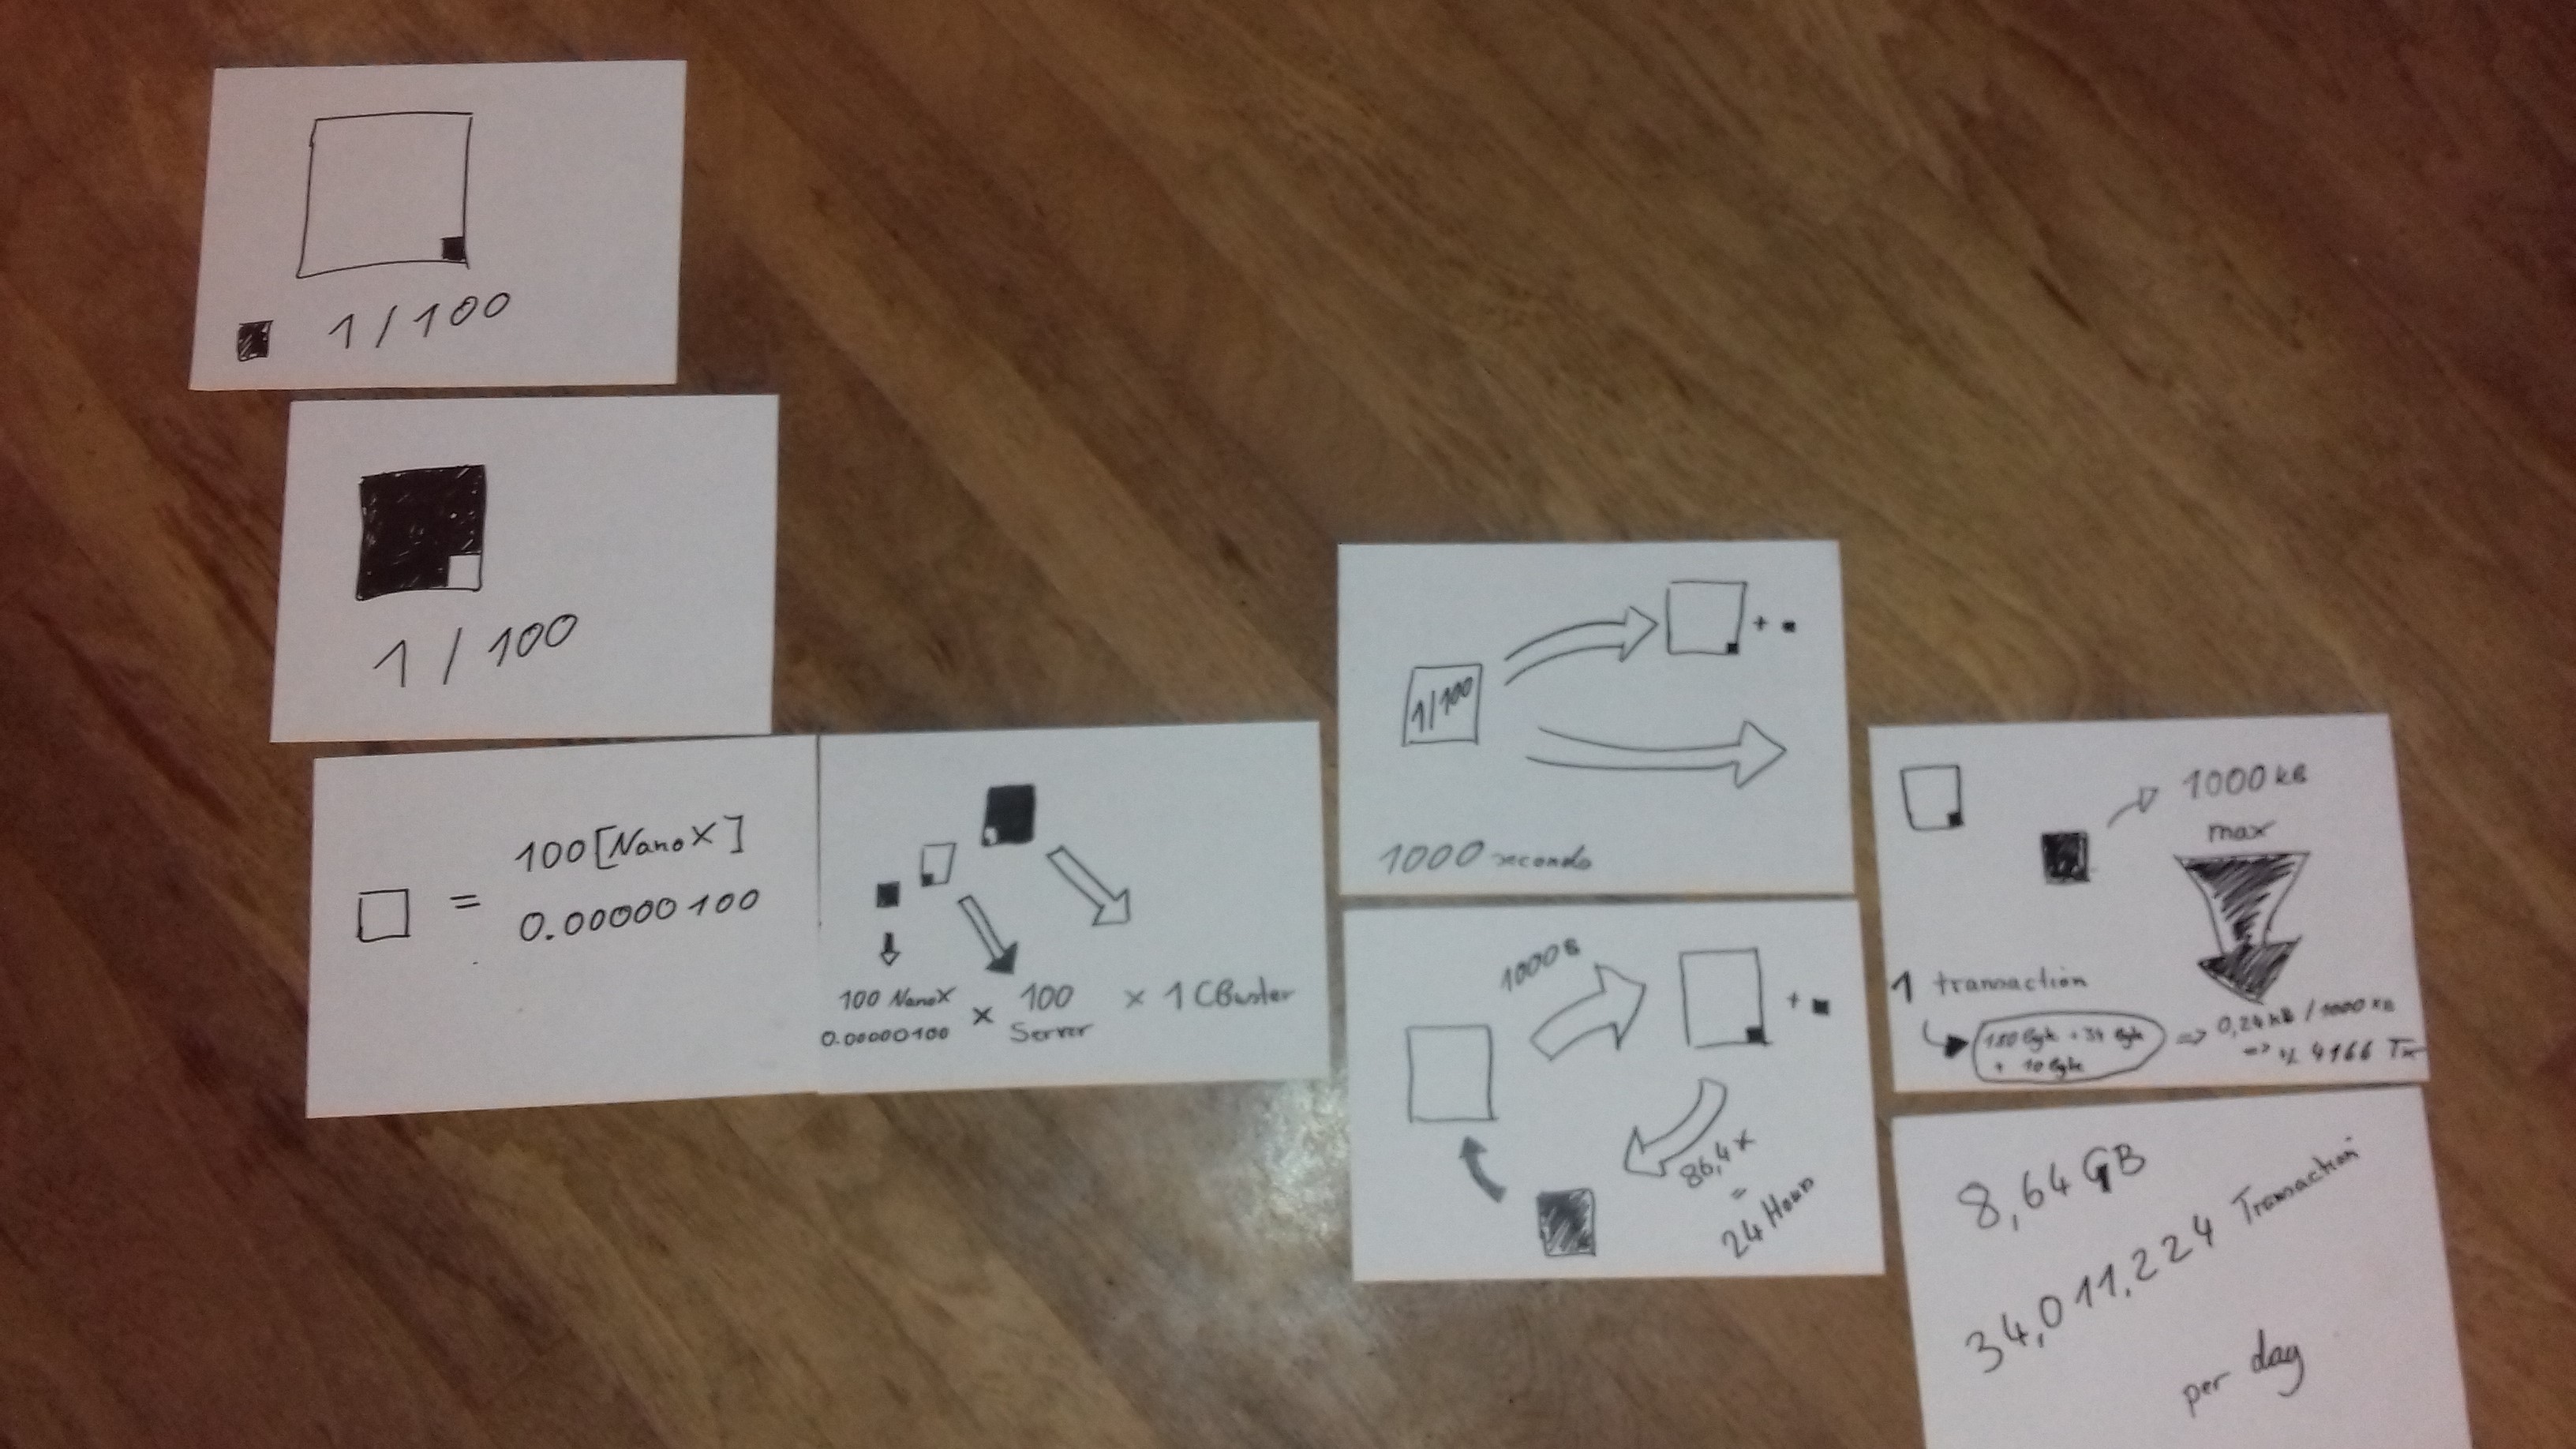 1/100
1/100
= 100[NanoX]
0.00000100
100 NanoX x 100 x 1 CBuster
0.00000100 Server
+
1/100
1000 seconds
1000s
+
86,4x
=
24 Hours
1000 kB
max
1 transaction
+ 34 Byte
+ 10 Byte
=> 0,24 kB / 1000 kB
=> 4166 Tx
8,64 GB
34,011,224 Transaction
per day